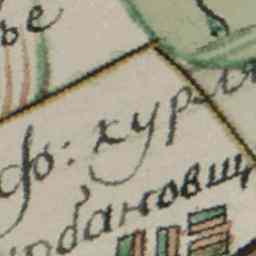 ье
ф: хурля
рбановщ